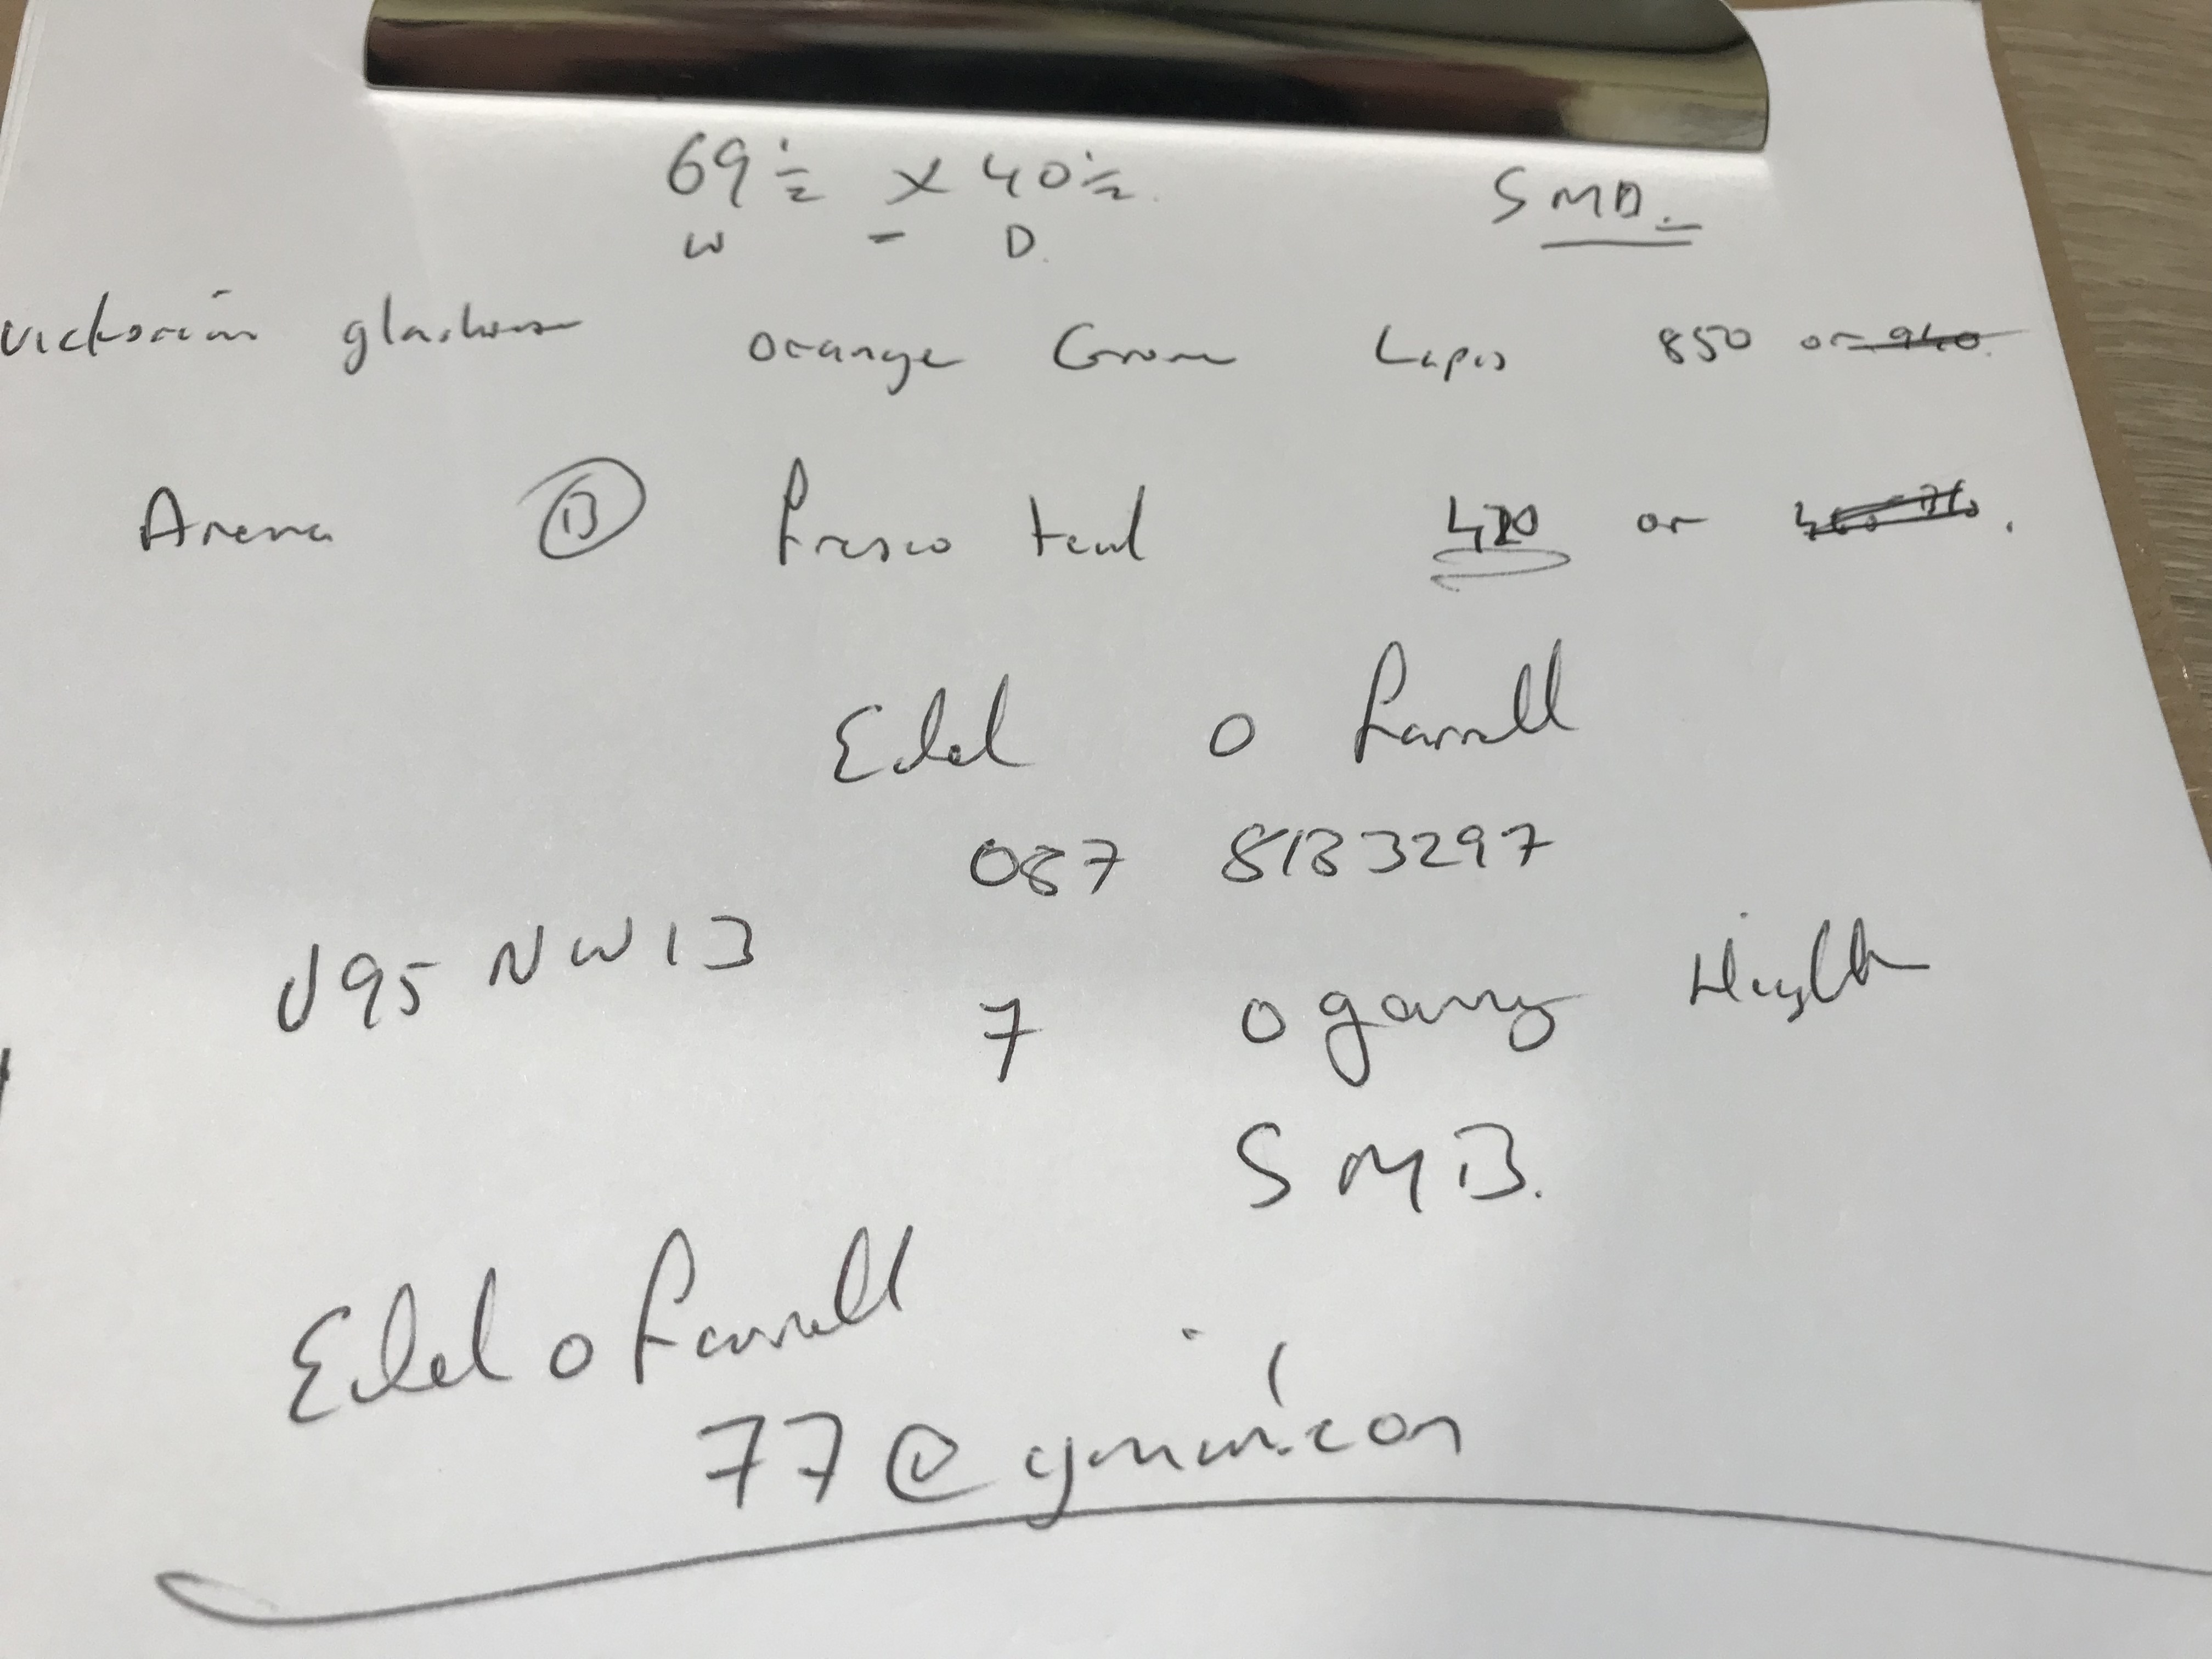 69 1/2 x 40 1/2.
W - D.
SMB.
Victorian glasshouse Orange Grove Lapis 850 or 940.
Arena B fresco teal 420 or
Edel O Farrell
087 8133297
V95 NW13
7 O garney Heights
SMB.
Edel o farrell
77@gmail.com